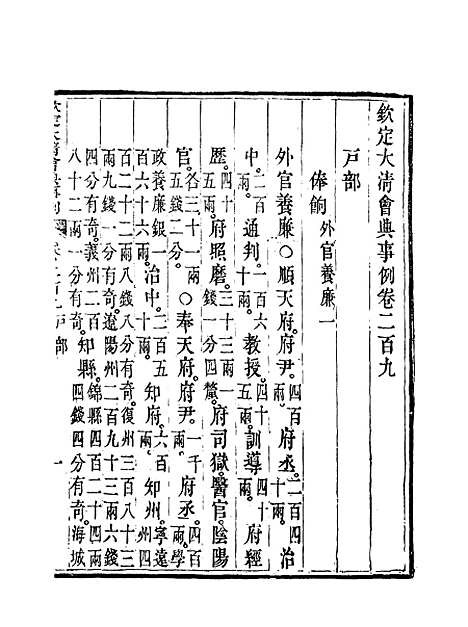 欽定大清會典事例卷二百九
戶部
俸餉 外官養廉一
外官養廉○順天府府尹四百兩。府丞二百四十兩。治
中二百兩。通判二百六十兩。教授四十五兩。訓導四十兩。府經
歷四十兩。府照磨三十三兩一錢一分四釐。府司獄。醫官。陰陽
官各三十一兩五錢二分。○奉天府府尹一千兩。府丞四百兩。學
政養廉銀一百六十六兩。治中三百五十兩。知府六百兩。知州寧遠州四
百二十二兩八分有奇。復州三百八十三
兩九錢一分有奇。遼陽州二百九十三兩六錢
四分有奇。義州二百
八十二兩一分有奇。知縣錦縣四百二十四兩
四錢四分有奇。海城